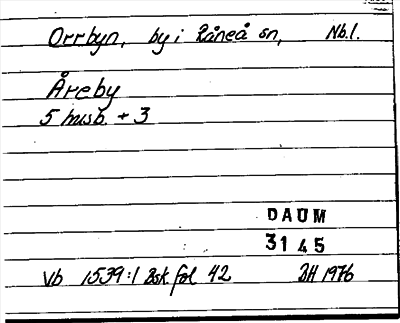 Orrbyn, by i Råneå sn, Nb.l.
Åreby
5 husb. + 3
DAUM
3145
Vb 1539:1 Bsk fol 42 BH 1976